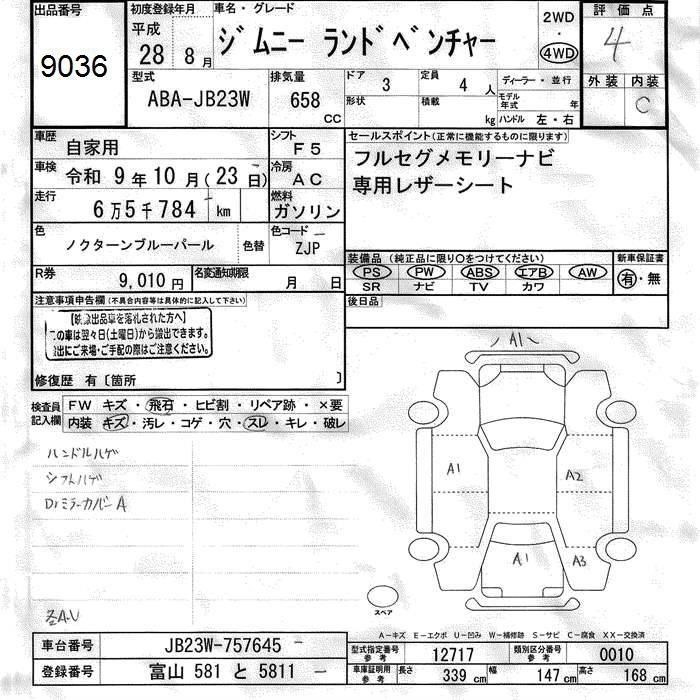 出品番号
9036
初度登録年月
平成
28 8月
車名・グレード
ジムニー ランドベンチャー
2WD
・
4WD
評価点
4
外装 内装
C
型式
ABA-JB23W
排気量
658
CC
ドア 3
形状
定員 4 人
積載 kg
ディーラー・並行
モデル年式 年
ハンドル 左・右
車歴
自家用
シフト
F5
車検
令和 9年 10月(23日)
冷房
AC
走行
6万5千784 km
燃料
ガソリン
色
ノクターンブルーパール
色替
色コード
ZJP
R券
9,010円
名変通知期限
月 日
セールスポイント(正常に機能するものに限ります)
フルセグメモリーナビ
専用レザーシート
装備品(純正品に限り○をつけてください)
PS PW ABS エアB AW
SR ナビ TV カワ
新車保証書
有・無
後日品
注意事項申告欄(不具合内容等は具体的に記入して下さい)
出品車を落札された方へ】
の車は翌々日(土曜日)から搬出できます。
出にご来場・ご手配の際はご注意ください。
修復歴 有〔箇所 〕
検査員
記入欄
FW キズ・飛石・ヒビ割・リペア跡・×要
内装 キズ・汚レ・コゲ・穴・スレ・キレ・破レ
ハンドルハゲ
シフトハゲ
Drミラーカバー A
A1
A1
A2
A1
A3
スペア
A-キズ E-エクボ U-凹み W-補修跡 S-サビ C-腐食 XX-交換済
車台番号
JB23W-757645
登録番号
富山 581 と 5811
型式指定番号
参考
12717
類別区分番号
参考
0010
車庫証明用
参考
長さ 339 cm
幅 147 cm
高さ 168 cm